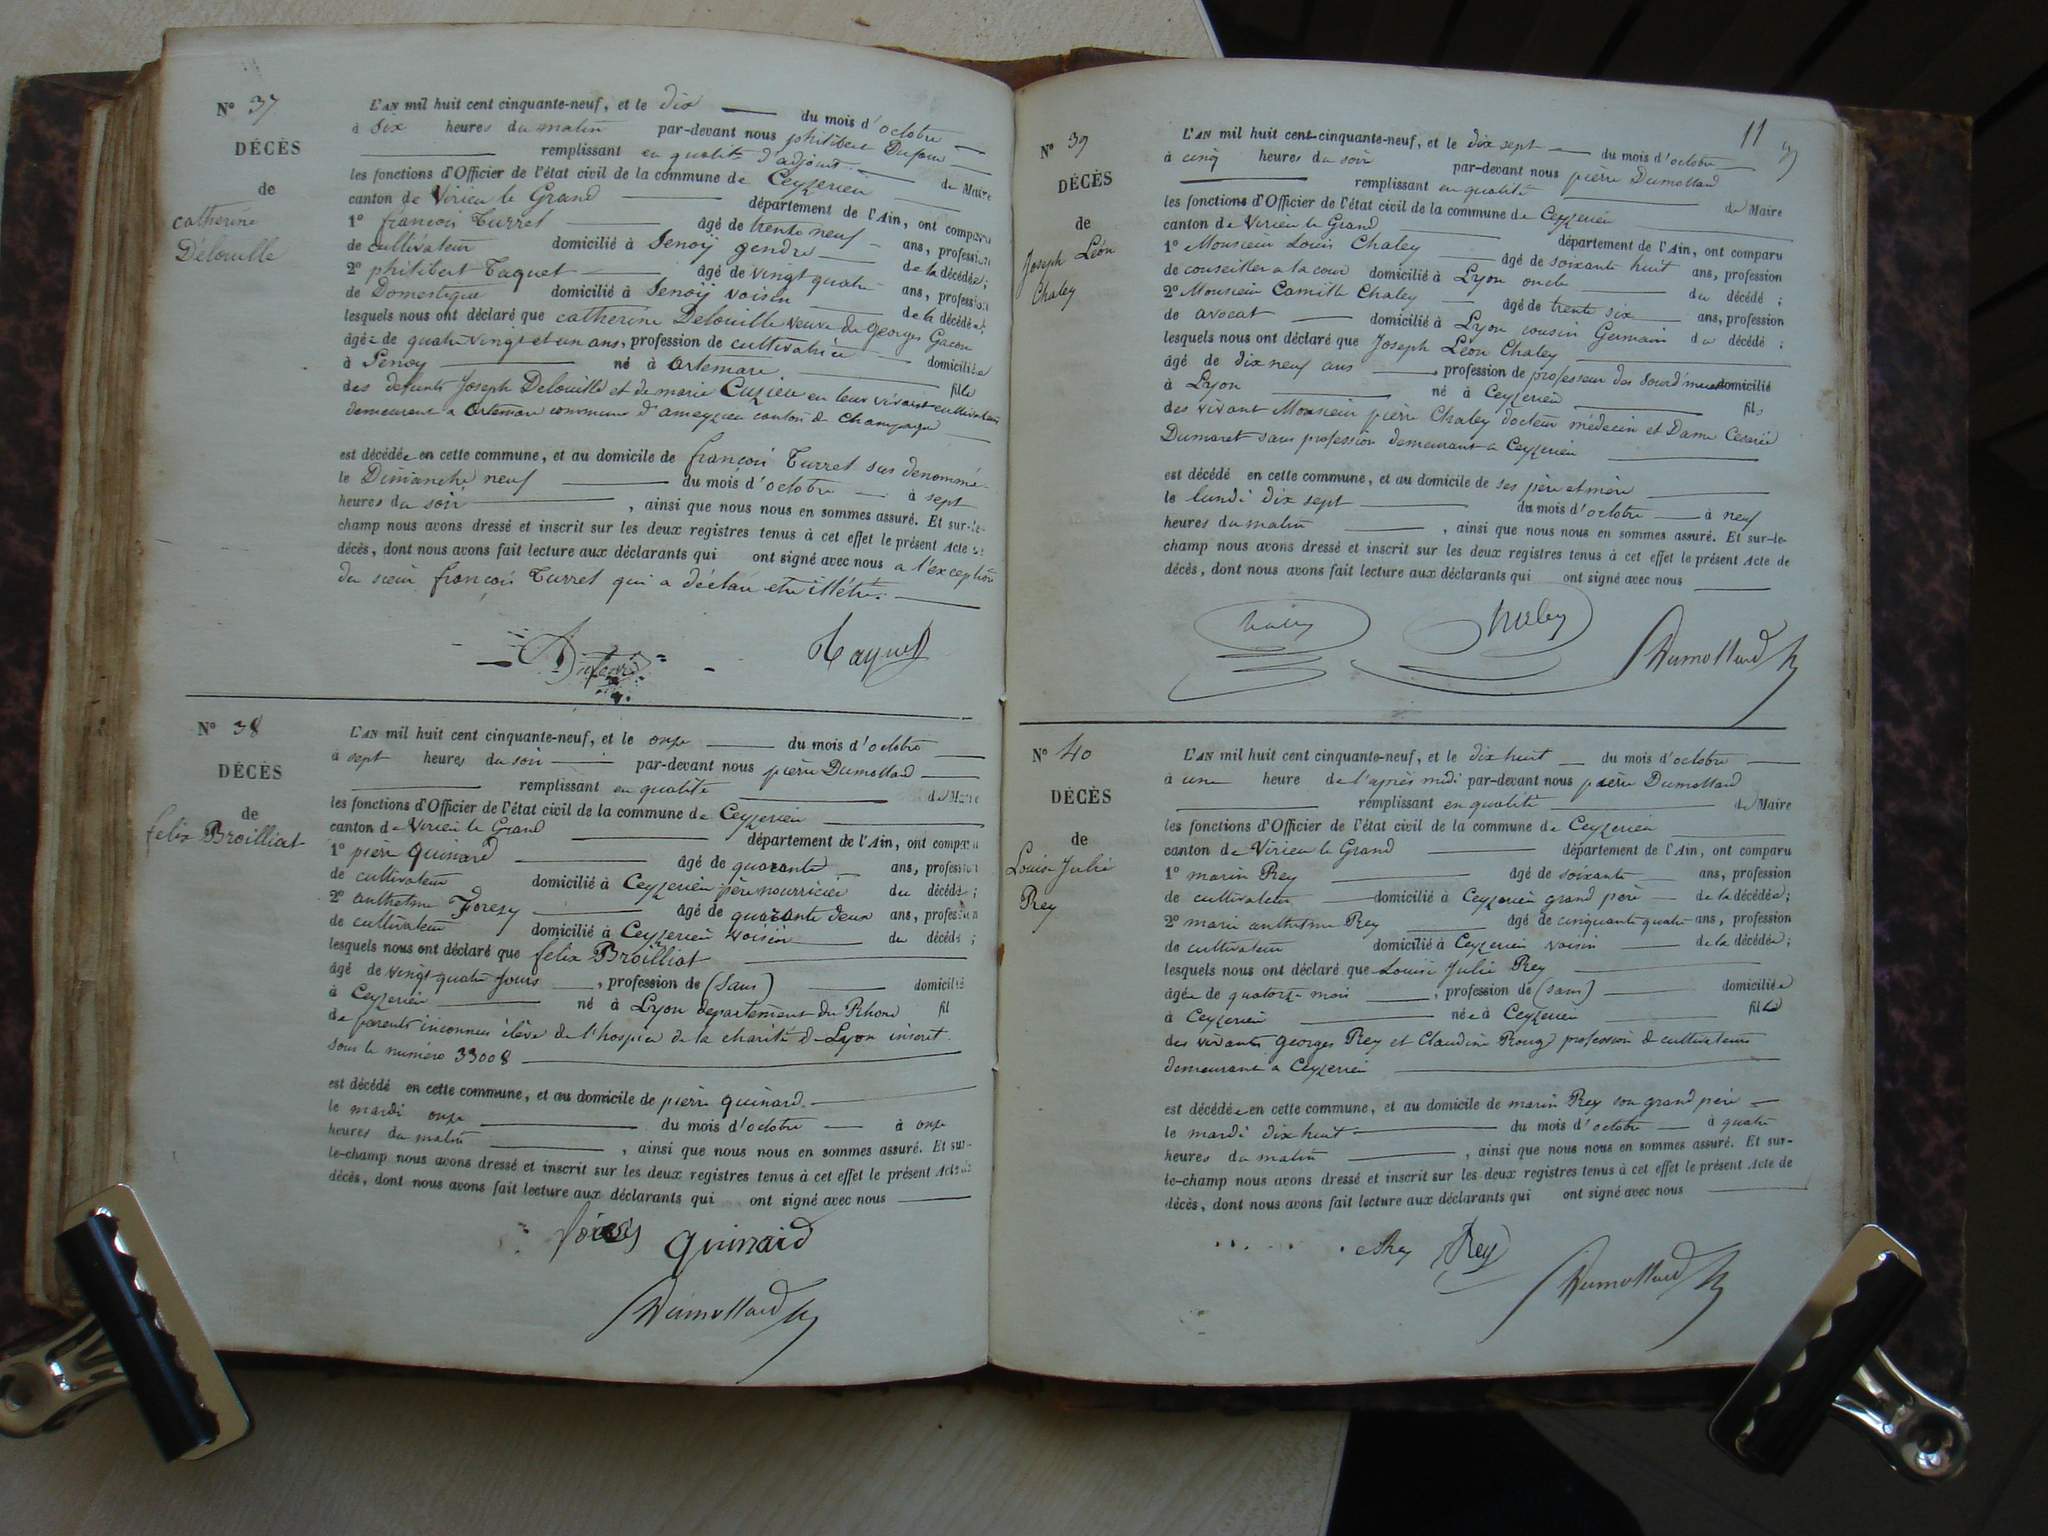 N° 37
DÉCÈS
de
catherine
Delouille
L'AN mil huit cent cinquante-neuf, et le dix du mois d'octobre
à six heures du matin par-devant nous philibert Dufour
remplissant en qualité d'adjoint de Maire
les fonctions d'Officier de l'état civil de la commune de Ceyzerieu
canton de Virieu le Grand département de l'Ain, ont comparu
1° françois Turrel âgé de trente neuf ans, profession
de cultivateur domicilié à Senoÿ gendre de la décédée;
2° philibert Taquet âgé de vingt quatre ans, profession
de Domestique domicilié à Senoÿ voisin de la décédée;
lesquels nous ont déclaré que catherine Delouille veuve de Georges Gacon
âgée de quatre vingt et un ans, profession de cultivatrice domiciliée
à Senoy né à Artemare fille
des defunts Joseph Delouille et de marie Cuzieu en leur vivant cultivateurs
demeurant a Artemare commune d'ameyzieu canton de Champagne
est décédée en cette commune, et au domicile de françois Turrel sus denommé
le Dimanche neuf du mois d'octobre à sept
heures du soir, ainsi que nous nous en sommes assuré. Et sur-le-
champ nous avons dressé et inscrit sur les deux registres tenus à cet effet le présent Acte de
décès, dont nous avons fait lecture aux déclarants qui ont signé avec nous a l'exception
du sieur françois Turrel qui a déclaré etre illétré.
Dufour Taquet
N° 38
DÉCÈS
de
felix Broilliat
L'AN mil huit cent cinquante-neuf, et le onze du mois d'octobre
à sept heures du soir par-devant nous pierre Dumollard
remplissant en qualité de Maire
les fonctions d'Officier de l'état civil de la commune de Ceyzerieu
canton de Virieu le Grand département de l'Ain, ont comparu
1° pierre quinard âgé de quarante ans, profession
de cultivateur domicilié à Ceyzerieu père nourricier du décédé;
2° anthelme Foresy âgé de quarante deux ans, profession
de cultivateur domicilié à Ceyzerieu voisin du décédé;
lesquels nous ont déclaré que felix Broilliat
âgé de vingt quatre jours, profession de (sans) domicilié
à Ceyzerieu né à Lyon departement du Rhone fil
de parents inconnus élève de l'hospice de la charité de Lyon inscrit
sous le numéro 33008
est décédé en cette commune, et au domicile de pierre quinard
le mardi onze du mois d'octobre à onze
heures du matin, ainsi que nous nous en sommes assuré. Et sur-
le-champ nous avons dressé et inscrit sur les deux registres tenus à cet effet le présent Acte de
décès, dont nous avons fait lecture aux déclarants qui ont signé avec nous
quinard
Dumollard
11
N° 39
DÉCÈS
de
Joseph Léon
Chaley
L'AN mil huit cent cinquante-neuf, et le dix sept du mois d'octobre
à cinq heures du soir par-devant nous pierre Dumollard
remplissant en qualité de Maire
les fonctions d'Officier de l'état civil de la commune de Ceyzerieu
canton de Virieu le Grand département de l'Ain, ont comparu
1° Monsieur Louis Chaley âgé de soixante huit ans, profession
de conseiller a la cour domicilié à Lyon oncle du décédé;
2° Monsieur Camille Chaley âgé de trente six ans, profession
de avocat domicilié à Lyon cousin Germain du décédé;
lesquels nous ont déclaré que Joseph Léon Chaley
âgé de dix neuf ans, profession de professeur des sourd'muets domicilié
à Lyon né à Ceyzerieu fils
des vivant Monsieur pierre Chaley docteur médecin et Dame Cesarie
Dumaret sans profession demeurant a Ceyzerieu
est décédé en cette commune, et au domicile de ses père et mère
le lundi dix sept du mois d'octobre à neuf
heures du matin, ainsi que nous nous en sommes assuré. Et sur-le-
champ nous avons dressé et inscrit sur les deux registres tenus à cet effet le présent Acte de
décès, dont nous avons fait lecture aux déclarants qui ont signé avec nous
Chaley Chaley Dumollard
N° 40
DÉCÈS
de
Louise Julie
Rey
L'AN mil huit cent cinquante-neuf, et le dix huit du mois d'octobre
à une heure de l'après midi par-devant nous pierre Dumollard
remplissant en qualité de Maire
les fonctions d'Officier de l'état civil de la commune de Ceyzerieu
canton de Virieu le Grand département de l'Ain, ont comparu
1° marin Rey âgé de soixante ans, profession
de cultivateur domicilié à Ceyzerieu grand père de la décédée;
2° marin anthelme Rey âgé de cinquante quatre ans, profession
de cultivateur domicilié à Ceyzerieu voisin de la décédée;
lesquels nous ont déclaré que Louise Julie Rey
âgée de quatorze mois, profession de (sans) domiciliée
à Ceyzerieu née à Ceyzerieu fille
des vivants Georges Rey et Claudine Rouge profession de cultivateurs
demeurant a Ceyzerieu
est décédée en cette commune, et au domicile de marin Rey son grand père
le mardi dix huit du mois d'octobre à quatre
heures du matin, ainsi que nous nous en sommes assuré. Et sur-
le-champ nous avons dressé et inscrit sur les deux registres tenus à cet effet le présent Acte de
décès, dont nous avons fait lecture aux déclarants qui ont signé avec nous
Rey Dumollard